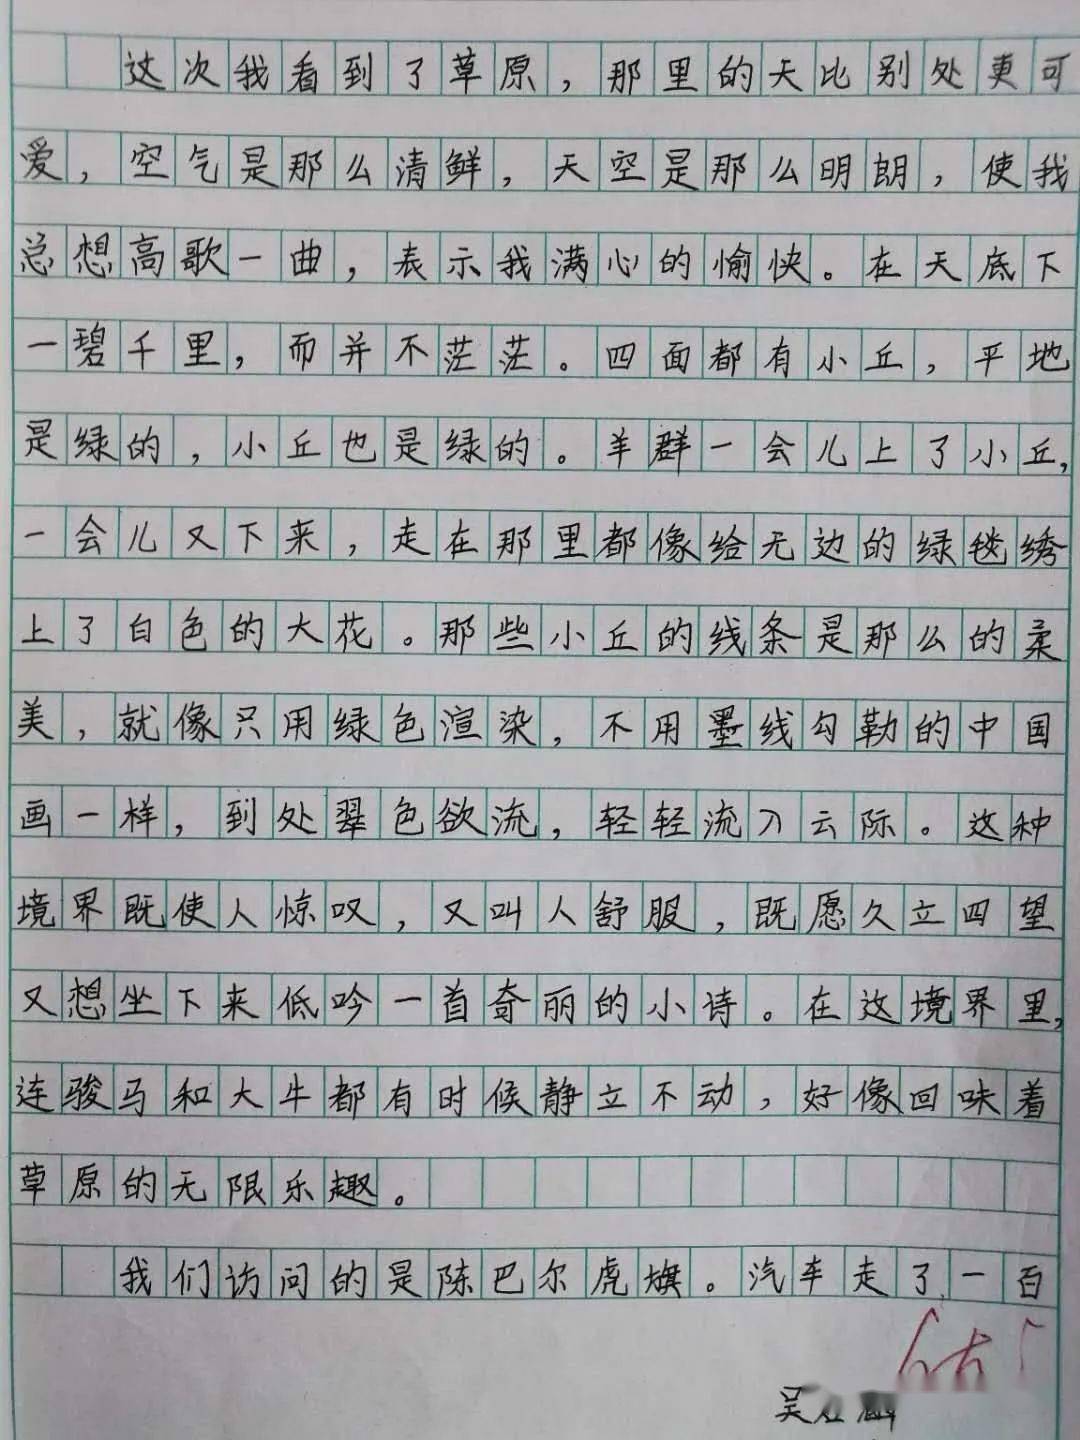 这次我看到了草原，那里的天比别处更可
爱，空气是那么清鲜，天空是那么明朗，使我
总想高歌一曲，表示我满心的愉快。在天底下
一碧千里，而并不茫茫。四面都有小丘，平地
是绿的，小丘也是绿的。羊群一会儿上了小丘，
一会儿又下来，走在那里都像给无边的绿毯绣
上了白色的大花。那些小丘的线条是那么的柔
美，就像只用绿色渲染，不用墨线勾勒的中国
画一样，到处翠色欲流，轻轻流入云际。这种
境界既使人惊叹，又叫人舒服，既愿久立四望
又想坐下来低吟一首奇丽的小诗。在这境界里，
连骏马和大牛都有时候静立不动，好像回味着
草原的无限乐趣。
我们访问的是陈巴尔虎旗。汽车走了一百
吴